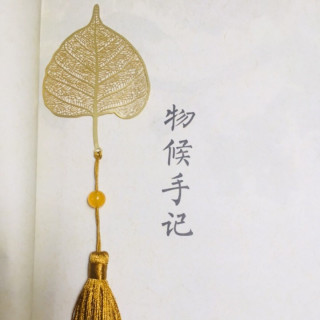 物候手记